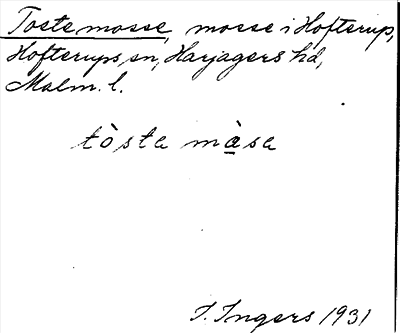 Toste mosse, mosse i Hofterup,
Hofterups sn, Harjagers hd,
Malm. l.
tòsta màsa
I. Ingers 1931